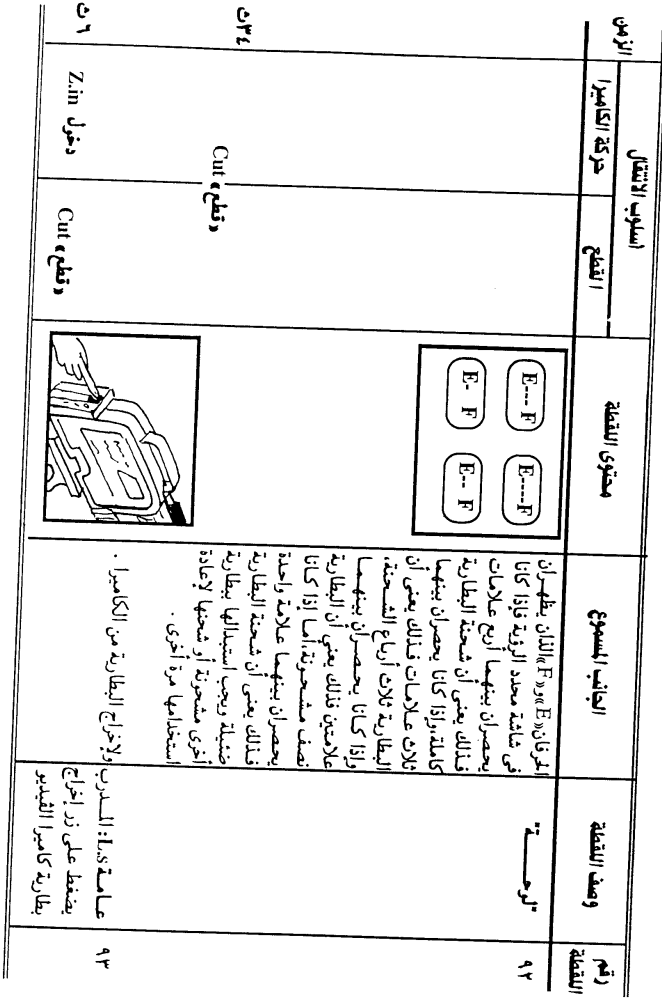 رقم اللقطة
وصف اللقطة
الجانب المسموع
محتوى اللقطة
اسلوب الانتقال
القطع
حركة الكاميرا
الزمن
٩٢
"لوحـــــة"
الحرفان «E» و «F» اللذان يظهران
فى شاشة محدد الرؤية فإذا كانا
يحصران بينهما أربع علامات
فـذلك يعنى أن شحنة البطارية
كاملة، وإذا كانا يحصران بينهما
ثلاث عـلامـات فـذلك يعنى أن
البطارية ثلاث أرباع الشـحنة،
وإذا كـانـا يـحـصـران بينهـمـا
علامتين فذلك يعنى أن البطارية
نصف مـشـحـونة، أمـا إذا كـانا
يحصران بينهمـا علامة واحدة
فـذلك يعنى أن شحنة البطارية
ضئيلة ويجب استبدالها ببطارية
أخرى مشحونة أو شحنها لإعادة
استخدامها مرة أخرى .
E--- F
E----F
E- F
E-- F
«قطع» Cut
٣٤ث
٩٣
عـامـة L.s: المــدرب
يضغط على زر إخراج
بطارية كاميرا الڤيديو
ولإخراج البطارية من الكاميرا .
«قطع» Cut
دخول Z.in
٦ث